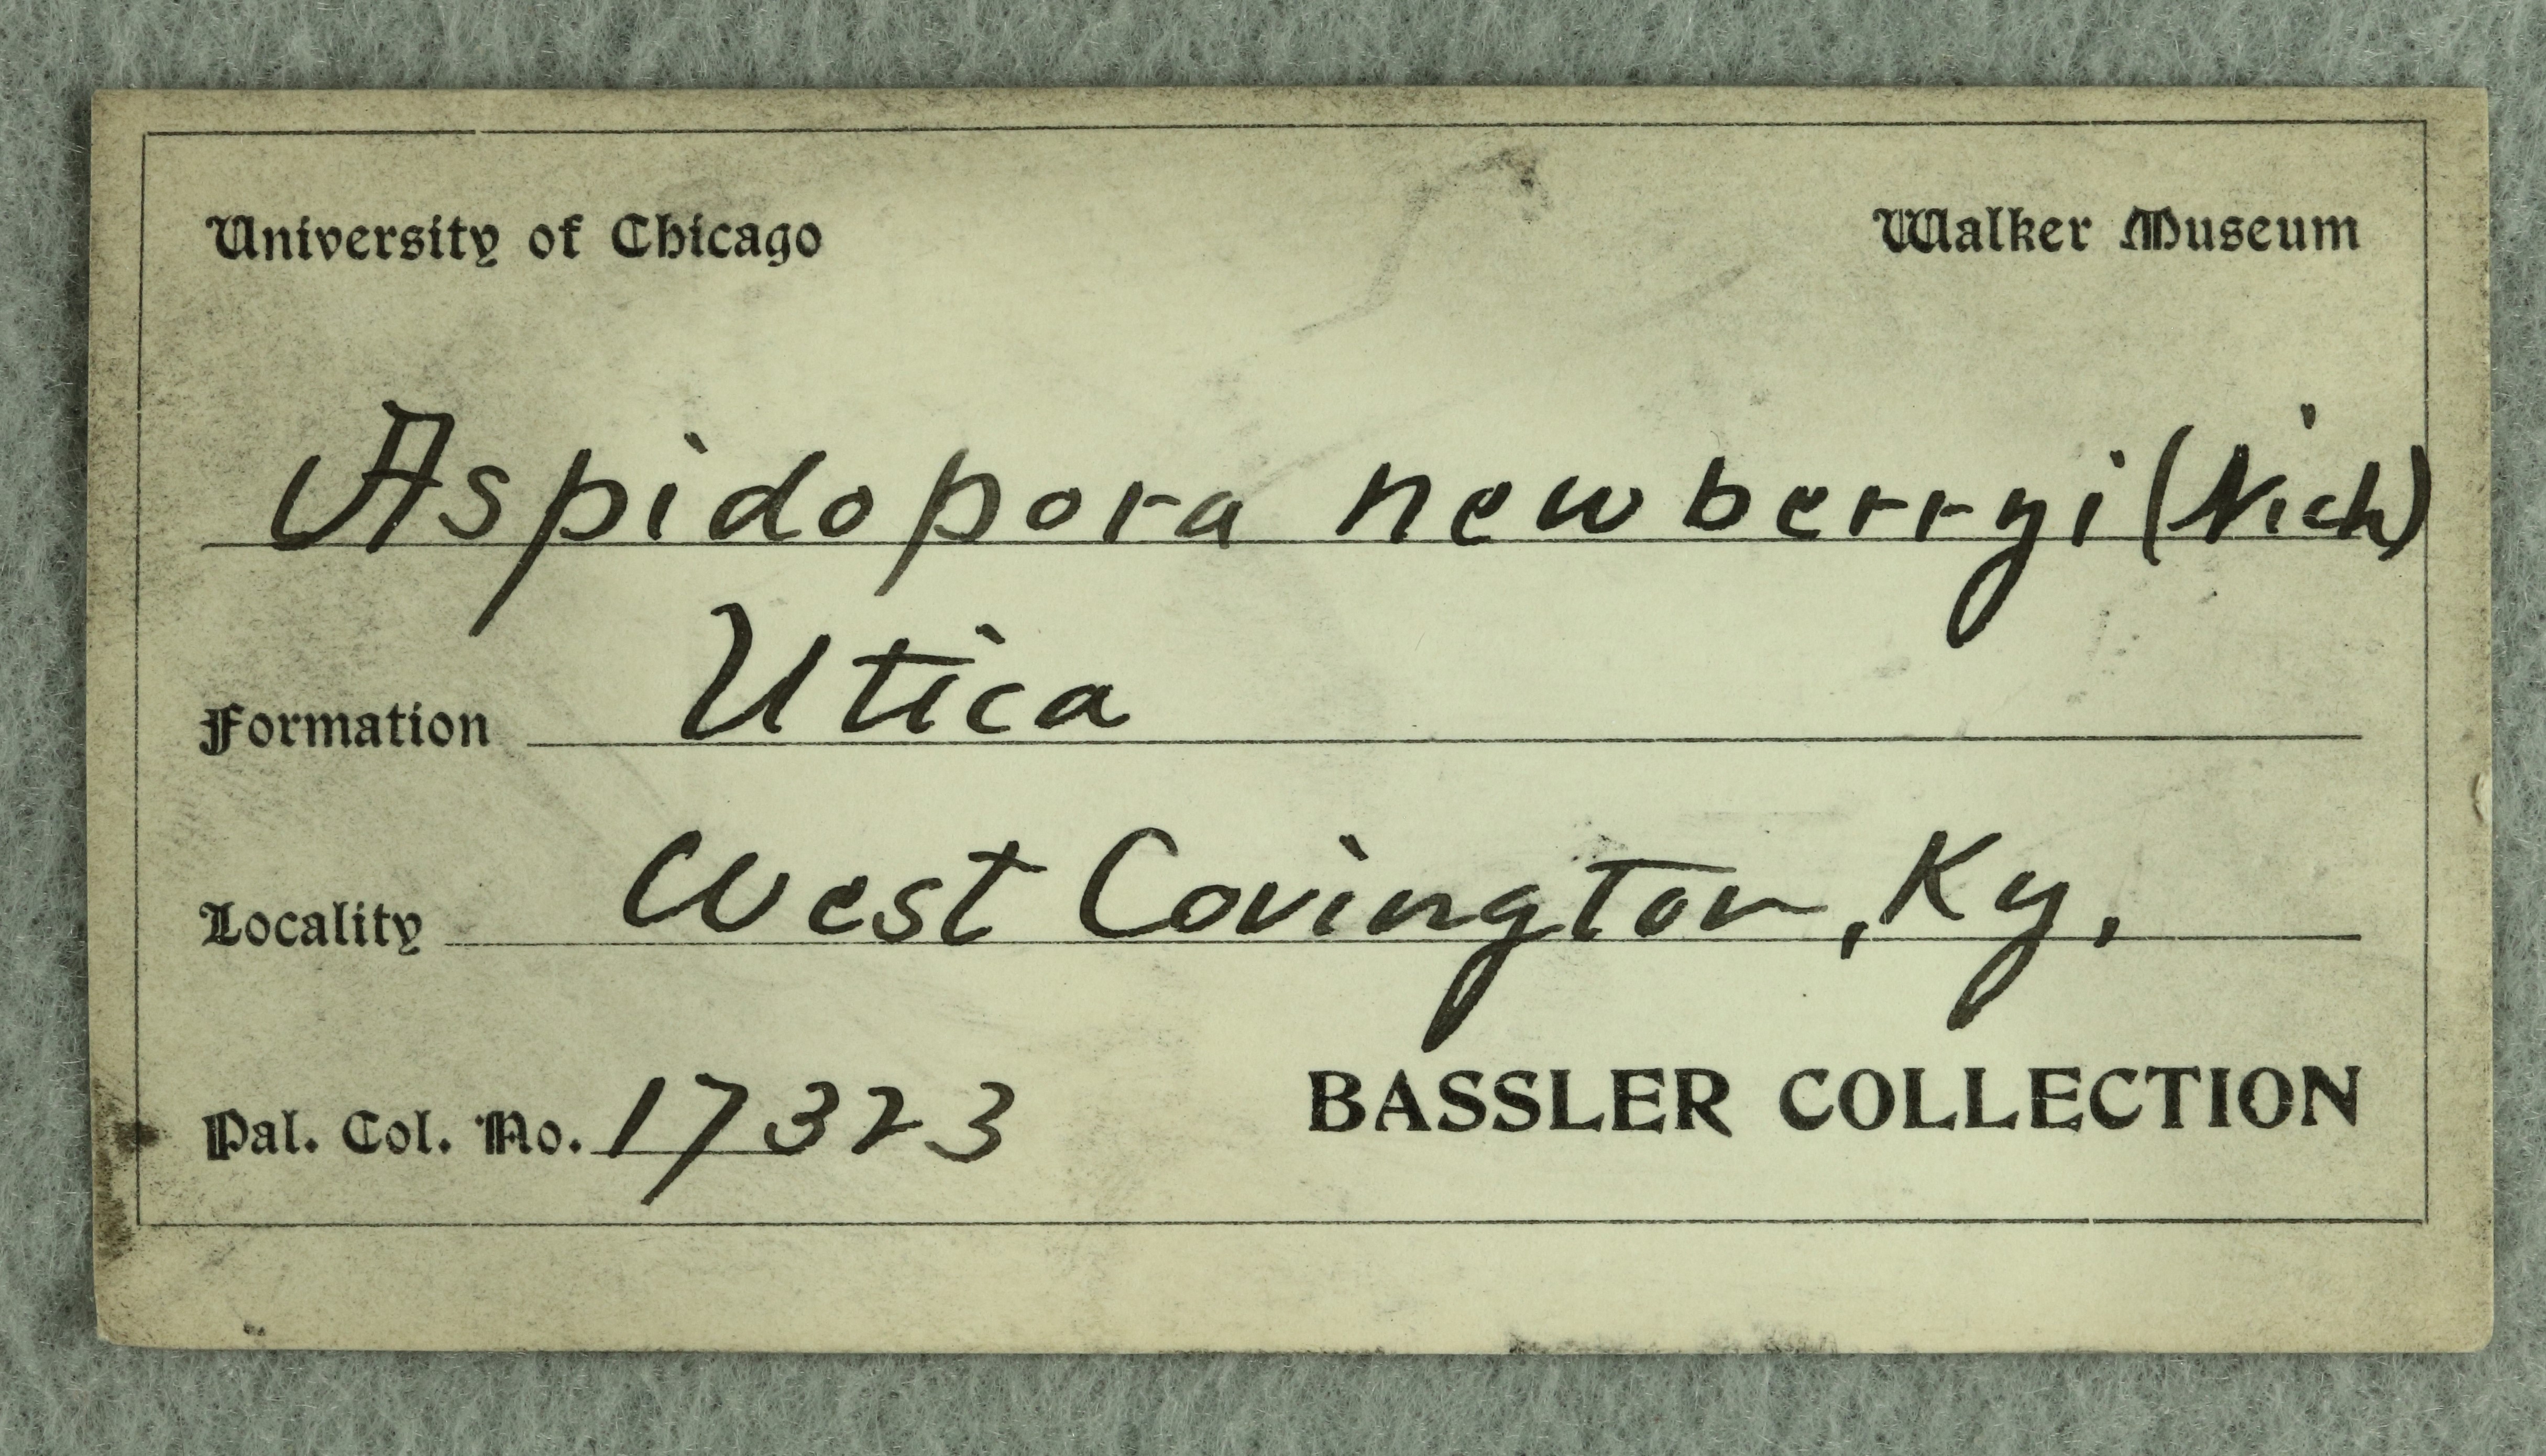 University of Chicago Walker Museum
Aspidopora newberryi (Nich)
Formation Utica
Locality West Covington, Ky,
Pal. Col. No. 17323 BASSLER COLLECTION